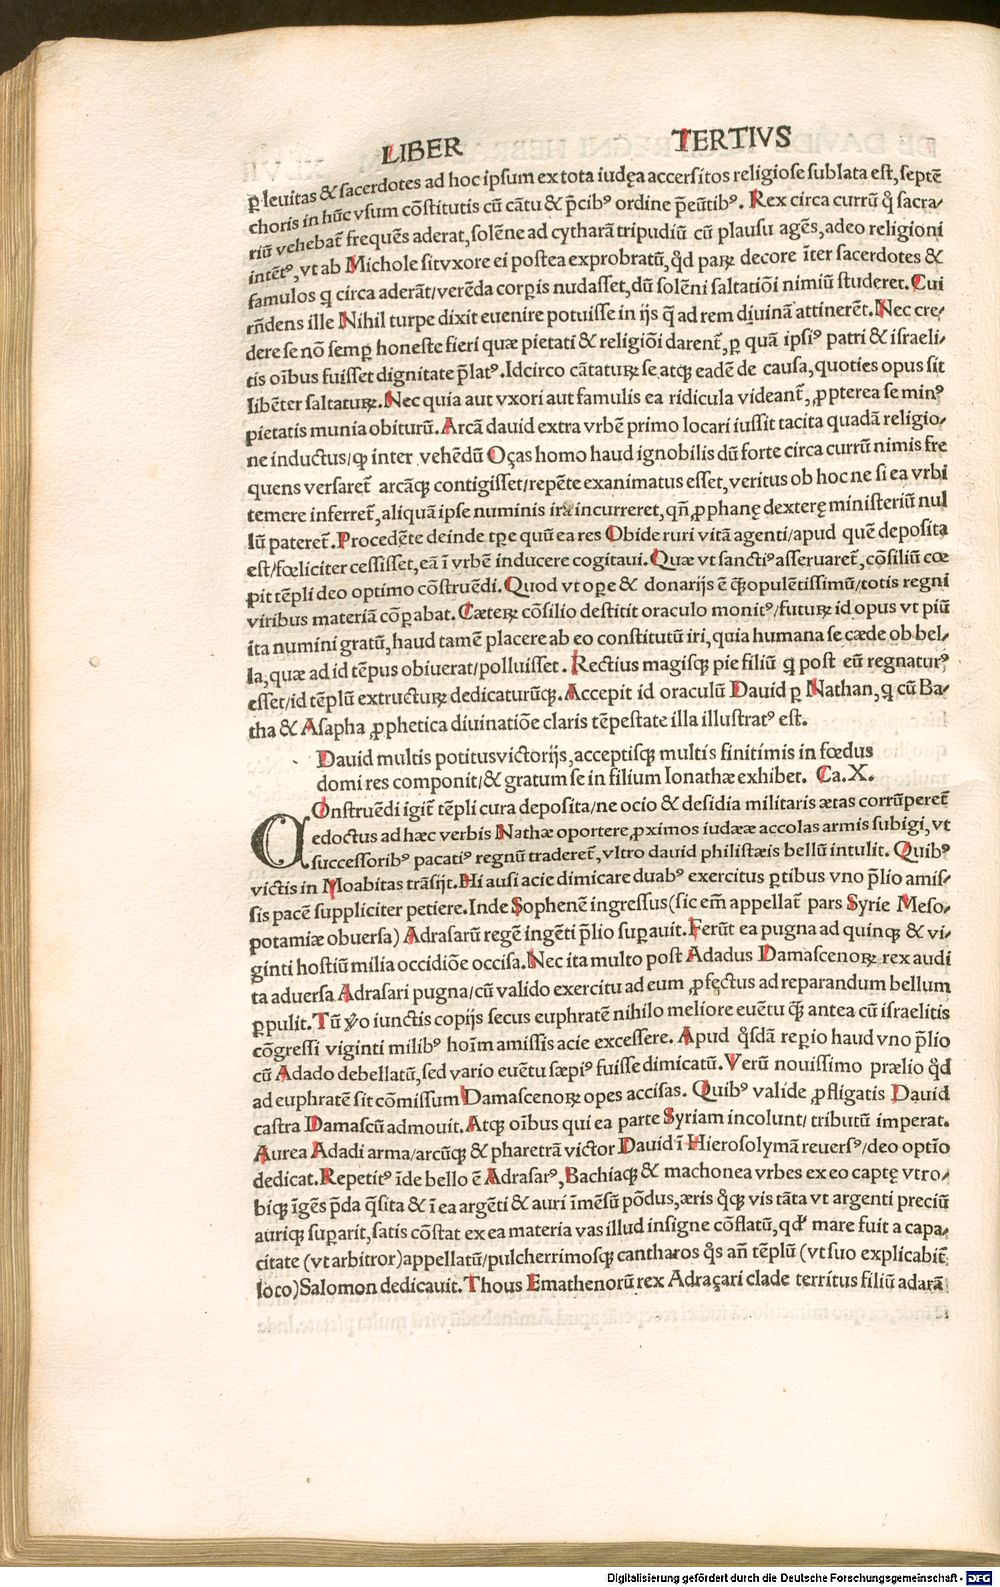 LIBER TERTIVS
ꝑ leuitas & sacerdotes ad hoc ipsum ex tota iudęa accersitos religiose sublata est, septē
choris in hūc vsum cōstitutis cū cātu & p̄cibꝰ ordine p̄eūtibꝰ. Rex circa currū q̊ sacra/
riū vehebat᷑ frequēs aderat, solēne ad cytharā tripudiū cū plausu agēs, adeo religioni
intētꝰ, vt ab Michole sit vxore ei postea exprobratū, q̊d paꝝ decore īter sacerdotes &
famulos q circa aderāt/verēda corꝑis nudasset, dū solēni saltatiōi nimiū studeret. Cui
rn̄dens ille Nihil turpe dixit euenire potuisse in ijs q̄ ad rem diuinā attinerēt. Nec cre/
dere se nō semꝑ honeste fieri quæ pietati & religiōi darent᷑, ꝑ quā ipsiꝰ patri & israeli/
tis oībus fuisset dignitate p̄latꝰ. Idcirco cātatuꝝ se atqꝫ eadē de causa, quoties opus sit
libēter saltatuꝝ. Nec quia aut vxori aut famulis ea ridicula videant᷑, ꝓpterea se minꝰ
pietatis munia obiturū. Arcā dauid extra vrbē primo locari iussit tacita quadā religio/
ne inductus/ꝙ inter vehēdū Oças homo haud ignobilis dū forte circa currū nimis fre
quens versaret᷑ arcāqꝫ contigisset/repēte exanimatus esset, veritus ob hoc ne si ea vrbi
temere inferret᷑, aliquā ipse numinis irā incurreret, qn̄ ꝓphanę dexterę ministeriū nul
lū pateret᷑. Procedēte deinde tꝑe quū ea res Obide ruri vitā agenti/apud quē deposita
est/fœliciter cessisset, eā ī vrbē inducere cogitaui. Quæ vt sanctiꝰ asseruaret᷑, cōsiliū cœ
pit tēpli deo optimo cōstruēdi. Quod vt oꝑe & donarijs ē q̄ꝫ opulētissimū/totis regni
viribus materiā cōꝑabat. Cæteꝝ cōsilio destitit oraculo monitꝰ/futuꝝ id opus vt piū
ita numini gratū, haud tamē placere ab eo constitutū iri, quia humana se cæde ob bel/
la, quæ ad id tēpus obiuerat/polluisset. Rectius magisqꝫ pie filiū q post eū regnaturꝰ
esset/id tēplū extructuꝝ dedicaturūqꝫ. Accepit id oraculū Dauid ꝑ Nathan, q cū Ba/
tha & Asapha ꝓphetica diuinatiōe claris tēpestate illa illustratꝰ est.
Dauid multis potitus victorijs, acceptisqꝫ multis finitimis in fœdus
domi res componit/& gratum se in filium Ionathæ exhibet. Ca. X.
COnstruēdi igit᷑ tēpli cura deposita/ne ocio & desidia militaris ætas corrūperet᷑
edoctus ad hæc verbis Nathæ oportere ꝓximos iudææ accolas armis subigi, vt
successoribꝰ pacatiꝰ regnū traderet᷑, vltro dauid philistæis bellū intulit. Quibꝰ
victis in Moabitas trāsijt. Hi ausi acie dimicare duabꝰ exercitus ꝑtibus vno p̄lio amis/
sis pacē suppliciter petiere. Inde Sophenē ingressus (sic em̄ appellat᷑ pars Syrie Meso/
potamiæ obuersa) Adrasarū regē ingēti p̄lio suꝑauit. Ferūt ea pugna ad quinqꝫ & vi/
ginti hostiū milia occidiōe occisa. Nec ita multo post Adadus Damascenoꝝ rex audi
ta aduersa Adrasari pugna/cū valido exercitu ad eum ꝓfectus ad reparandum bellum
ꝑpulit. Tū ꝟo iunctis copijs secus euphratē nihilo meliore euētu q̄ꝫ antea cū israelitis
cōgressi viginti milibꝰ hoīm amissis acie excessere. Apud q̊sdā reꝑio haud vno p̄lio
cū Adado debellatū, sed vario euētu sæpiꝰ fuisse dimicatū. Verū nouissimo prælio q̊d
ad euphratē sit cōmissum Damascenoꝝ opes accisas. Quibꝰ valide ꝓfligatis Dauid
castra Damascū admouit. Atqꝫ oībus qui ea parte Syriam incolunt/tributū imperat.
Aurea Adadi arma/arcūqꝫ & pharetrā victor Dauid ī Hierosolymā reuersꝰ/deo optīo
dedicat. Repetitꝰ īde bello ē Adrasarꝰ, Bachiaqꝫ & machonea vrbes ex eo captę vtro/
biqꝫ īgēs p̄da q̄sita & ī ea argēti & auri īmēsū pōdus, æris q̊qꝫ vis tāta vt argenti preciū
auriqꝫ suꝑarit, satis cōstat ex ea materia vas illud insigne cōflatū, qd̛ mare fuit a capa/
citate (vt arbitror) appellatū/pulcherrimosqꝫ cantharos q̊s an̄ tēplū (vt suo explicabit᷑
loco) Salomon dedicauit. Thous Emathenorū rex Adraçari clade territus filiū adarā
Digitalisierung gefördert durch die Deutsche Forschungsgemeinschaft - DFG